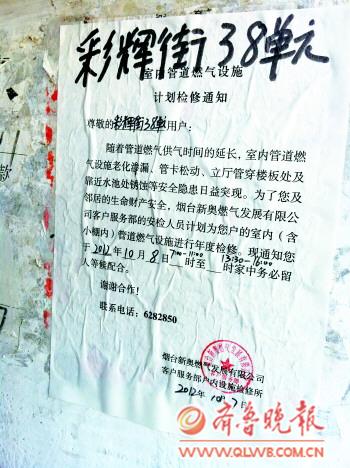 彩辉街38单元
室内管道燃气设施
计划检修通知
尊敬的彩辉街38单用户：
随着管道燃气供气时间的延长，室内管道燃
气设施老化渗漏、管卡松动、立厅管穿楼板处及
靠近水池处锈蚀等安全隐患日益突现。为了您及
邻居的生命财产安全，烟台新奥燃气发展有限公
司客户服务部的安检人员计划为您户的室内（含
小棚内）管道燃气设施进行年度检修。现通知您
于2012年10月8日7:00-11:00时至13:30-16:00时家中务必留
人等候配合。
谢谢合作！
联系电话：6282850
烟台新奥燃气发展有限公司
客户服务部户内设施检修所
2012年10月7日
齐鲁晚报
WWW.QLWB.COM.CN